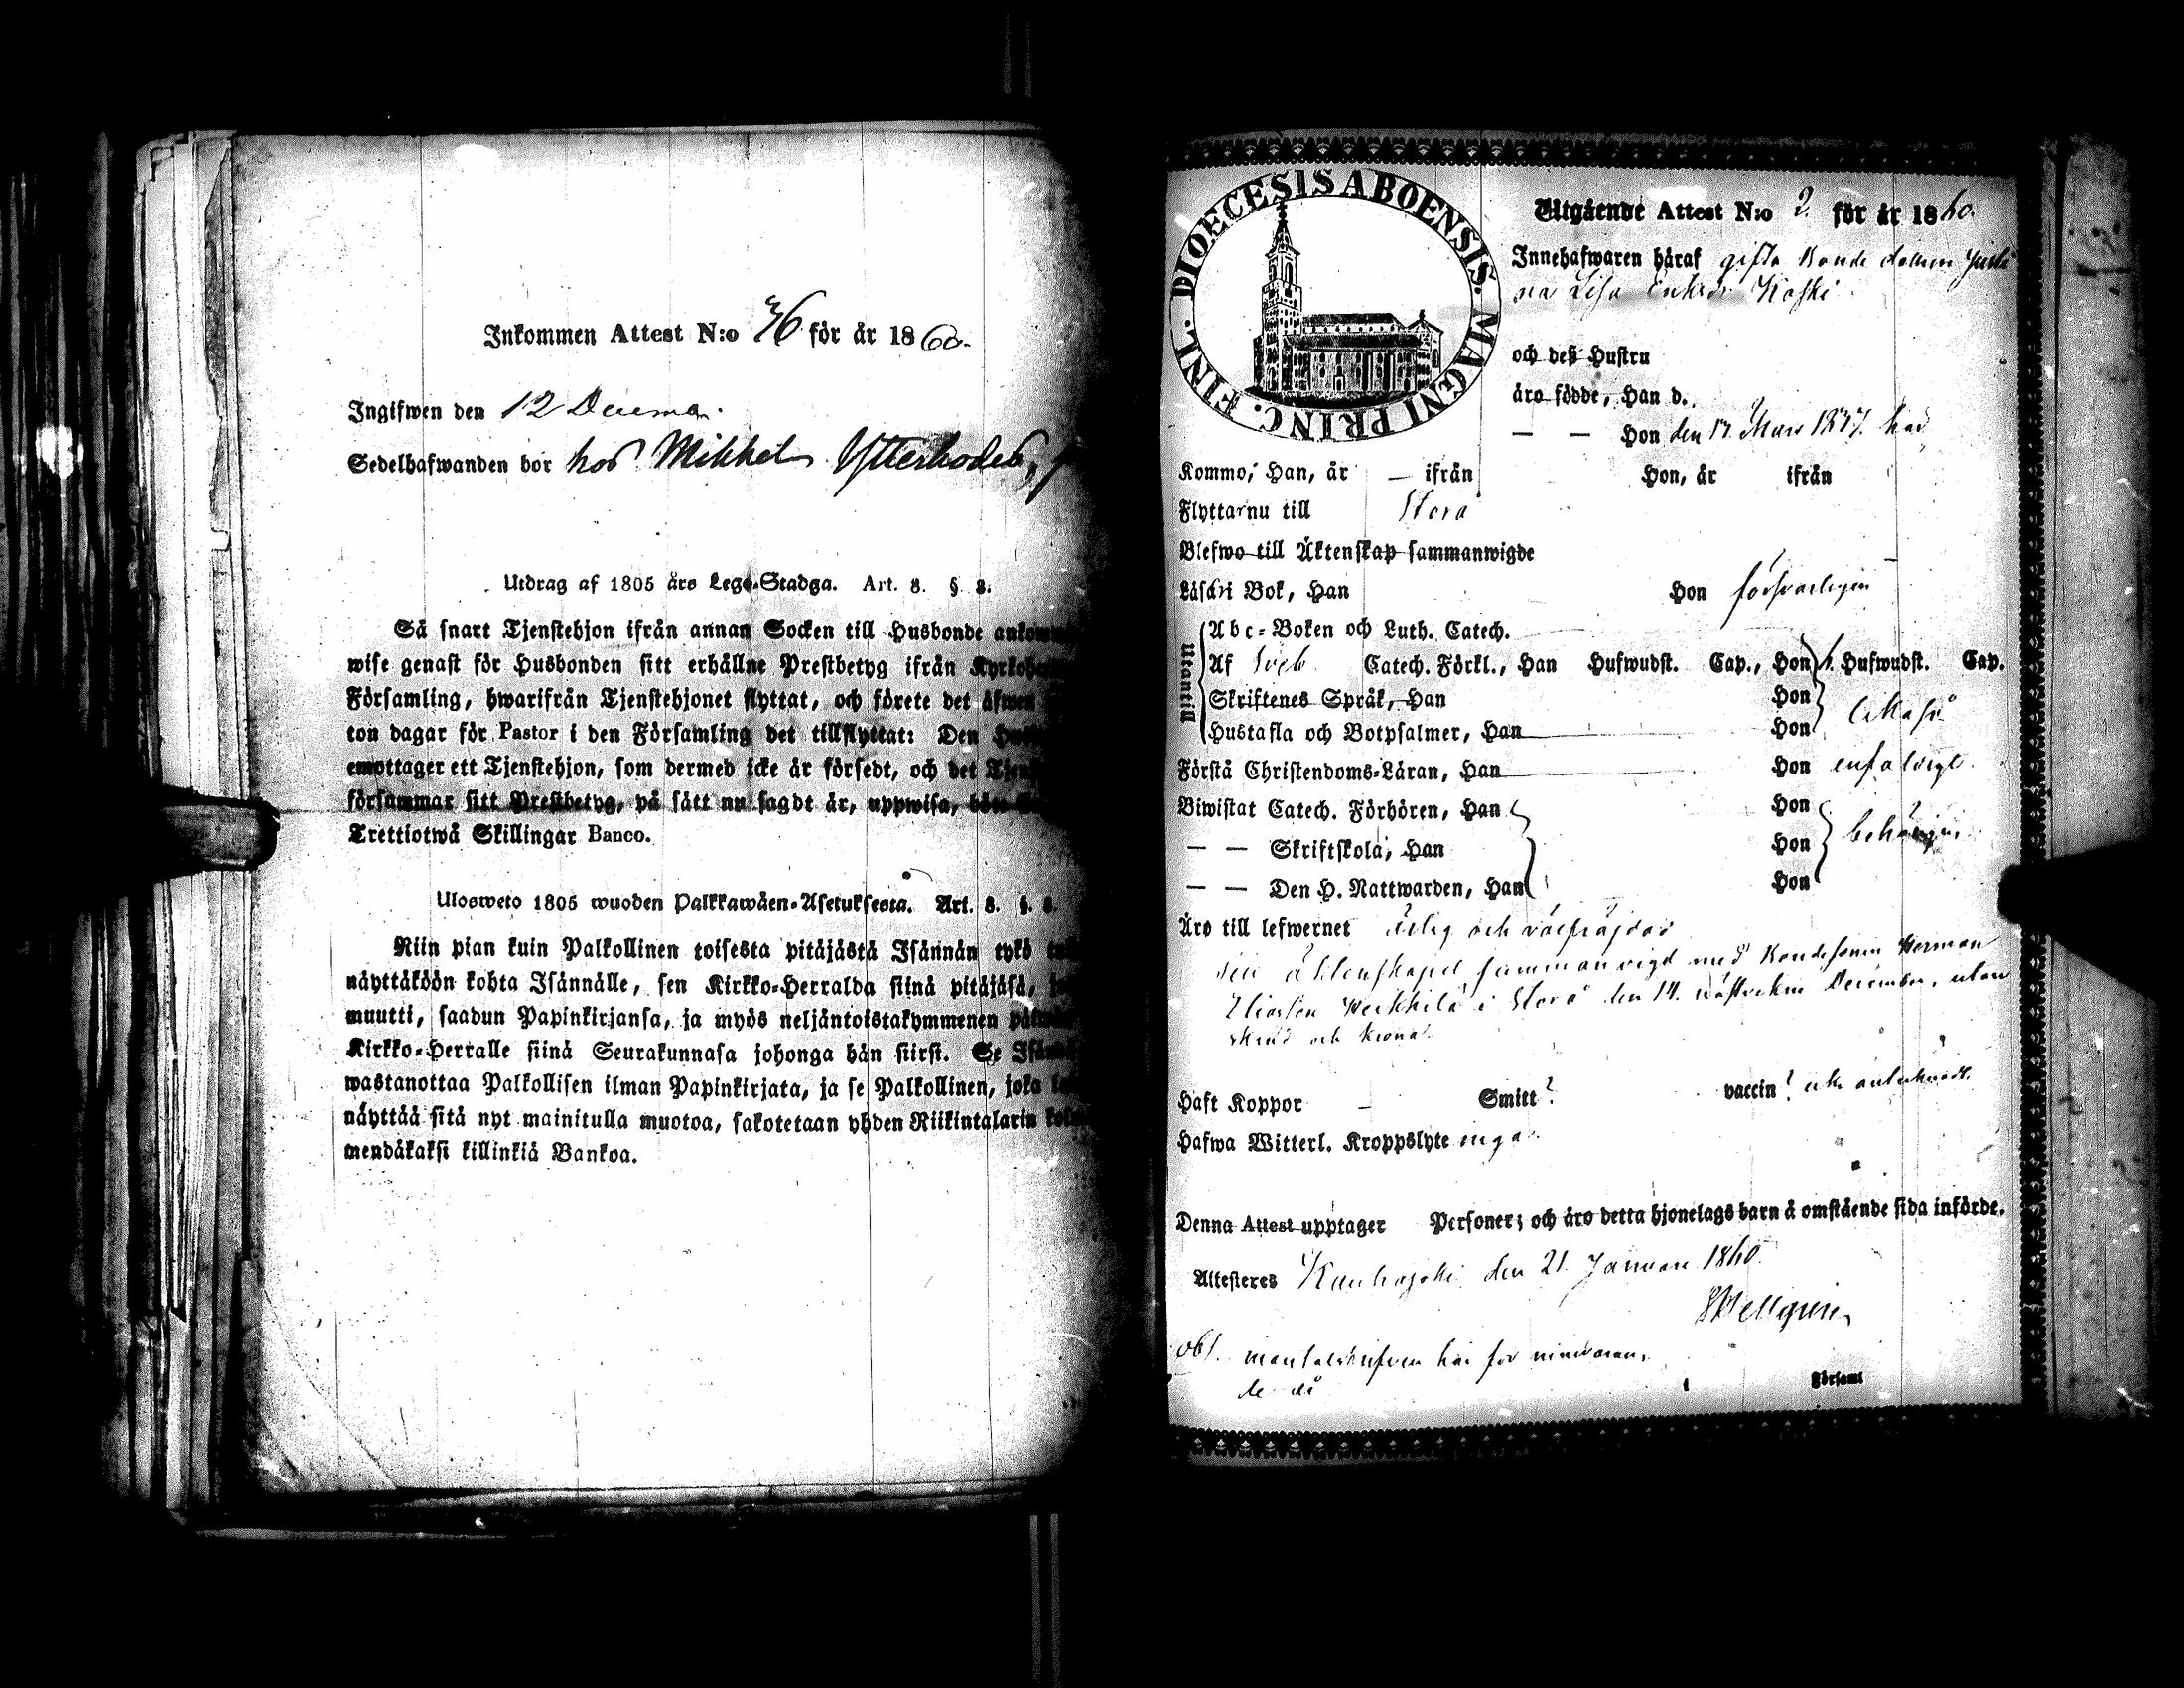 Inkommen Attest N:o 76 för år 1860.
Ingifwen den 12 Decemb.
Sedelhafwanden bor hos Mikkel Ytterbodes,
Utdrag af 1805 års Lego-Stadga. Art. 8. § 8.
Så snart Tjenstehjon ifrån annan Socken till Husbonde
wise genast för Husbonden sitt erhållne Prestbetyg ifrån
Församling, hwarifrån Tjenstehjonet flyttat, och förete det äfwen
ton dagar för Pastor i den Församling det tillflyttat: Den
emottager ett Tjenstehjon, som dermed icke är försedt, och det
försummar sitt Prestbetyg, på sätt nu sagdt är, uppwisa,
Trettiotwå Skillingar Banco.
Ulosweto 1805 wuoden Palkkawäen-Asetuksesta. Art. 8. §. 8.
Niin pian kuin Palkollinen toisesta pitäjästä Isännän tykö
näyttäköön kohta Isännälle, sen Kirkko-Herralda siinä pitäjäsä,
muutti, saadun Papinkirjansa, ja myös neljäntoistakymmenen
Kirkko-Herralle siinä Seurakunnasa johonga hän siirsi. Se
wastanottaa Palkollisen ilman Papinkirjata, ja se Palkollinen, joka
näyttää sitä nyt mainitulla muotoa, sakotetaan yhden Riikintalarin
mendäkaksi killinkiä Bankoa.
DIOECESIS ABOENSIS. MAGNI PRINC. FINL.
Utgående Attest N:o 2. för år 1860.
Innehafwaren häraf gifta Bonde dottern
na Lisa Koski
och deß Hustru
äro födde, Han d.
— — Hon den 17 Mars 1837. här
Kommo; Han, år — ifrån Hon, år ifrån
Flyttar nu till Storå
Blefwo till Äktenskap sammanwigde
Läsa i Bok, Han Hon försvarligen
Utantill
Abc-Boken och Luth. Catech.
Af Sveb. Catech. Förkl., Han Hufwudst. Cap., Hon Hufwudst. Cap.
Skriftenes Språk, Han Hon
Hustafla och Botpsalmer, Han Hon
Förstå Christendoms-Läran, Han Hon enfaldigt.
Biwistat Catech. Förhören, Han Hon
— — Skriftskola, Han Hon behörigen
— — Den H. Nattwarden, Han Hon
Äro till lefwernet ärlig och välfräjdad
äktenskapet sammanvigd med Bondesonen Herman
Eliasson i Storå den 14. December, utan
och krona.
Haft Koppor — Smitt? vaccin?
Hafwa Witterl. Kroppslyte inga.
Denna Attest upptager Personer; och äro detta hjonelags barn å omstående sida införde.
Attesteras Kauhajoki den 21 Januari 1860.
Hellgren
obs. mantalskrifven här för
Församl